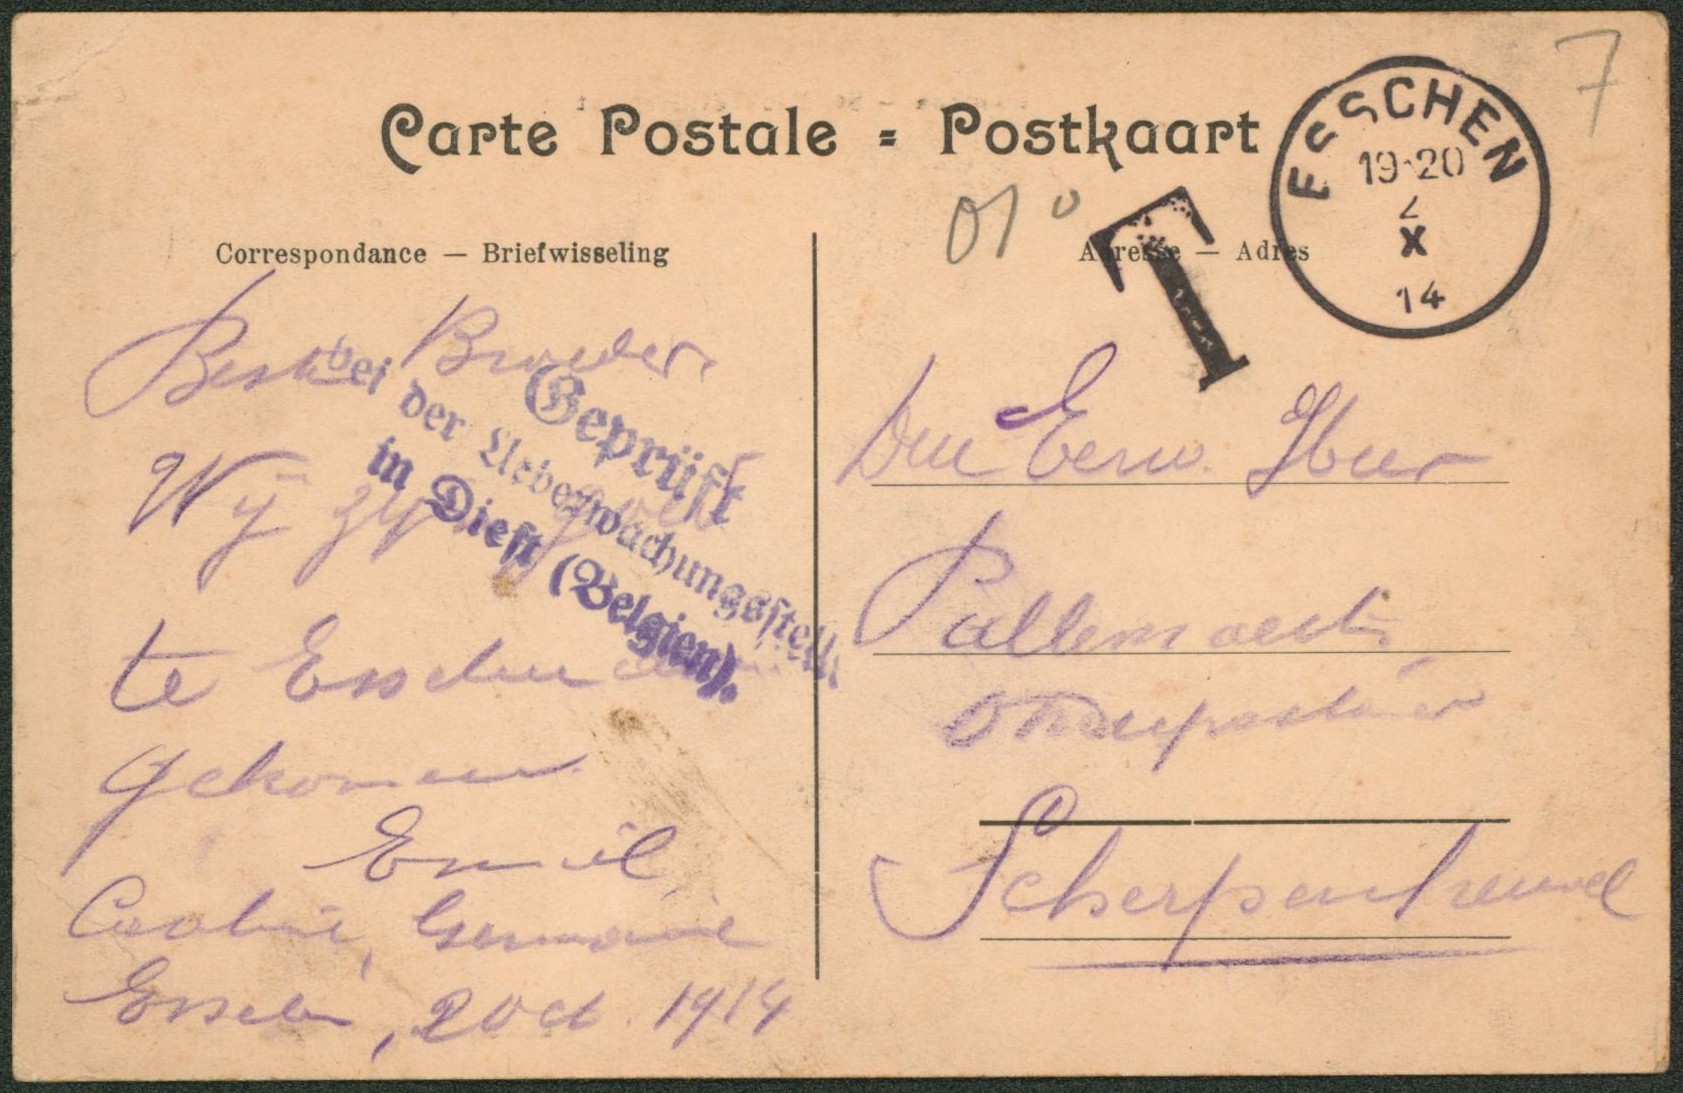 Carte Postale = Postkaart
7
ESSCHEN
19-20
2
X
14
T
Correspondance — Briefwisseling
Adresse — Adres
Beste Broeder,
Wij zijn goed
te Esschen aan
gekomen
Emil,
Germaine
Esschen, 2 Oct. 1914
Geprüft
bei der Ueberwachungsstelle
in Diest (Belgien).
Den Eerw. Heer
Pallemaerts
Onderpastoor
Scherpenheuvel